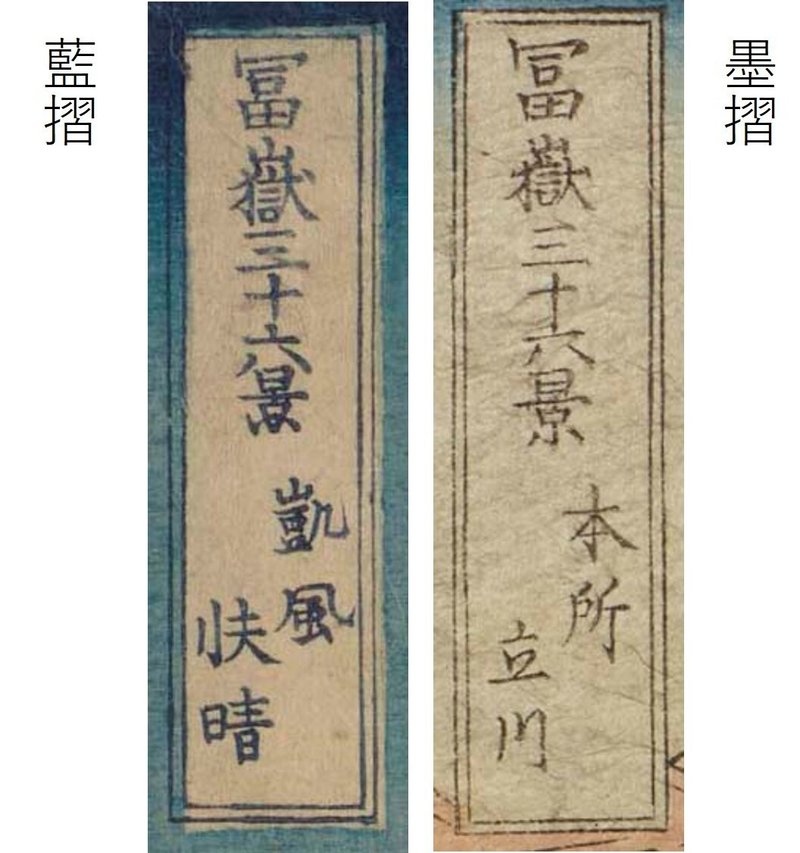 墨摺
冨嶽三十六景
本所
立川
冨嶽三十六景
凱風
快晴
藍摺